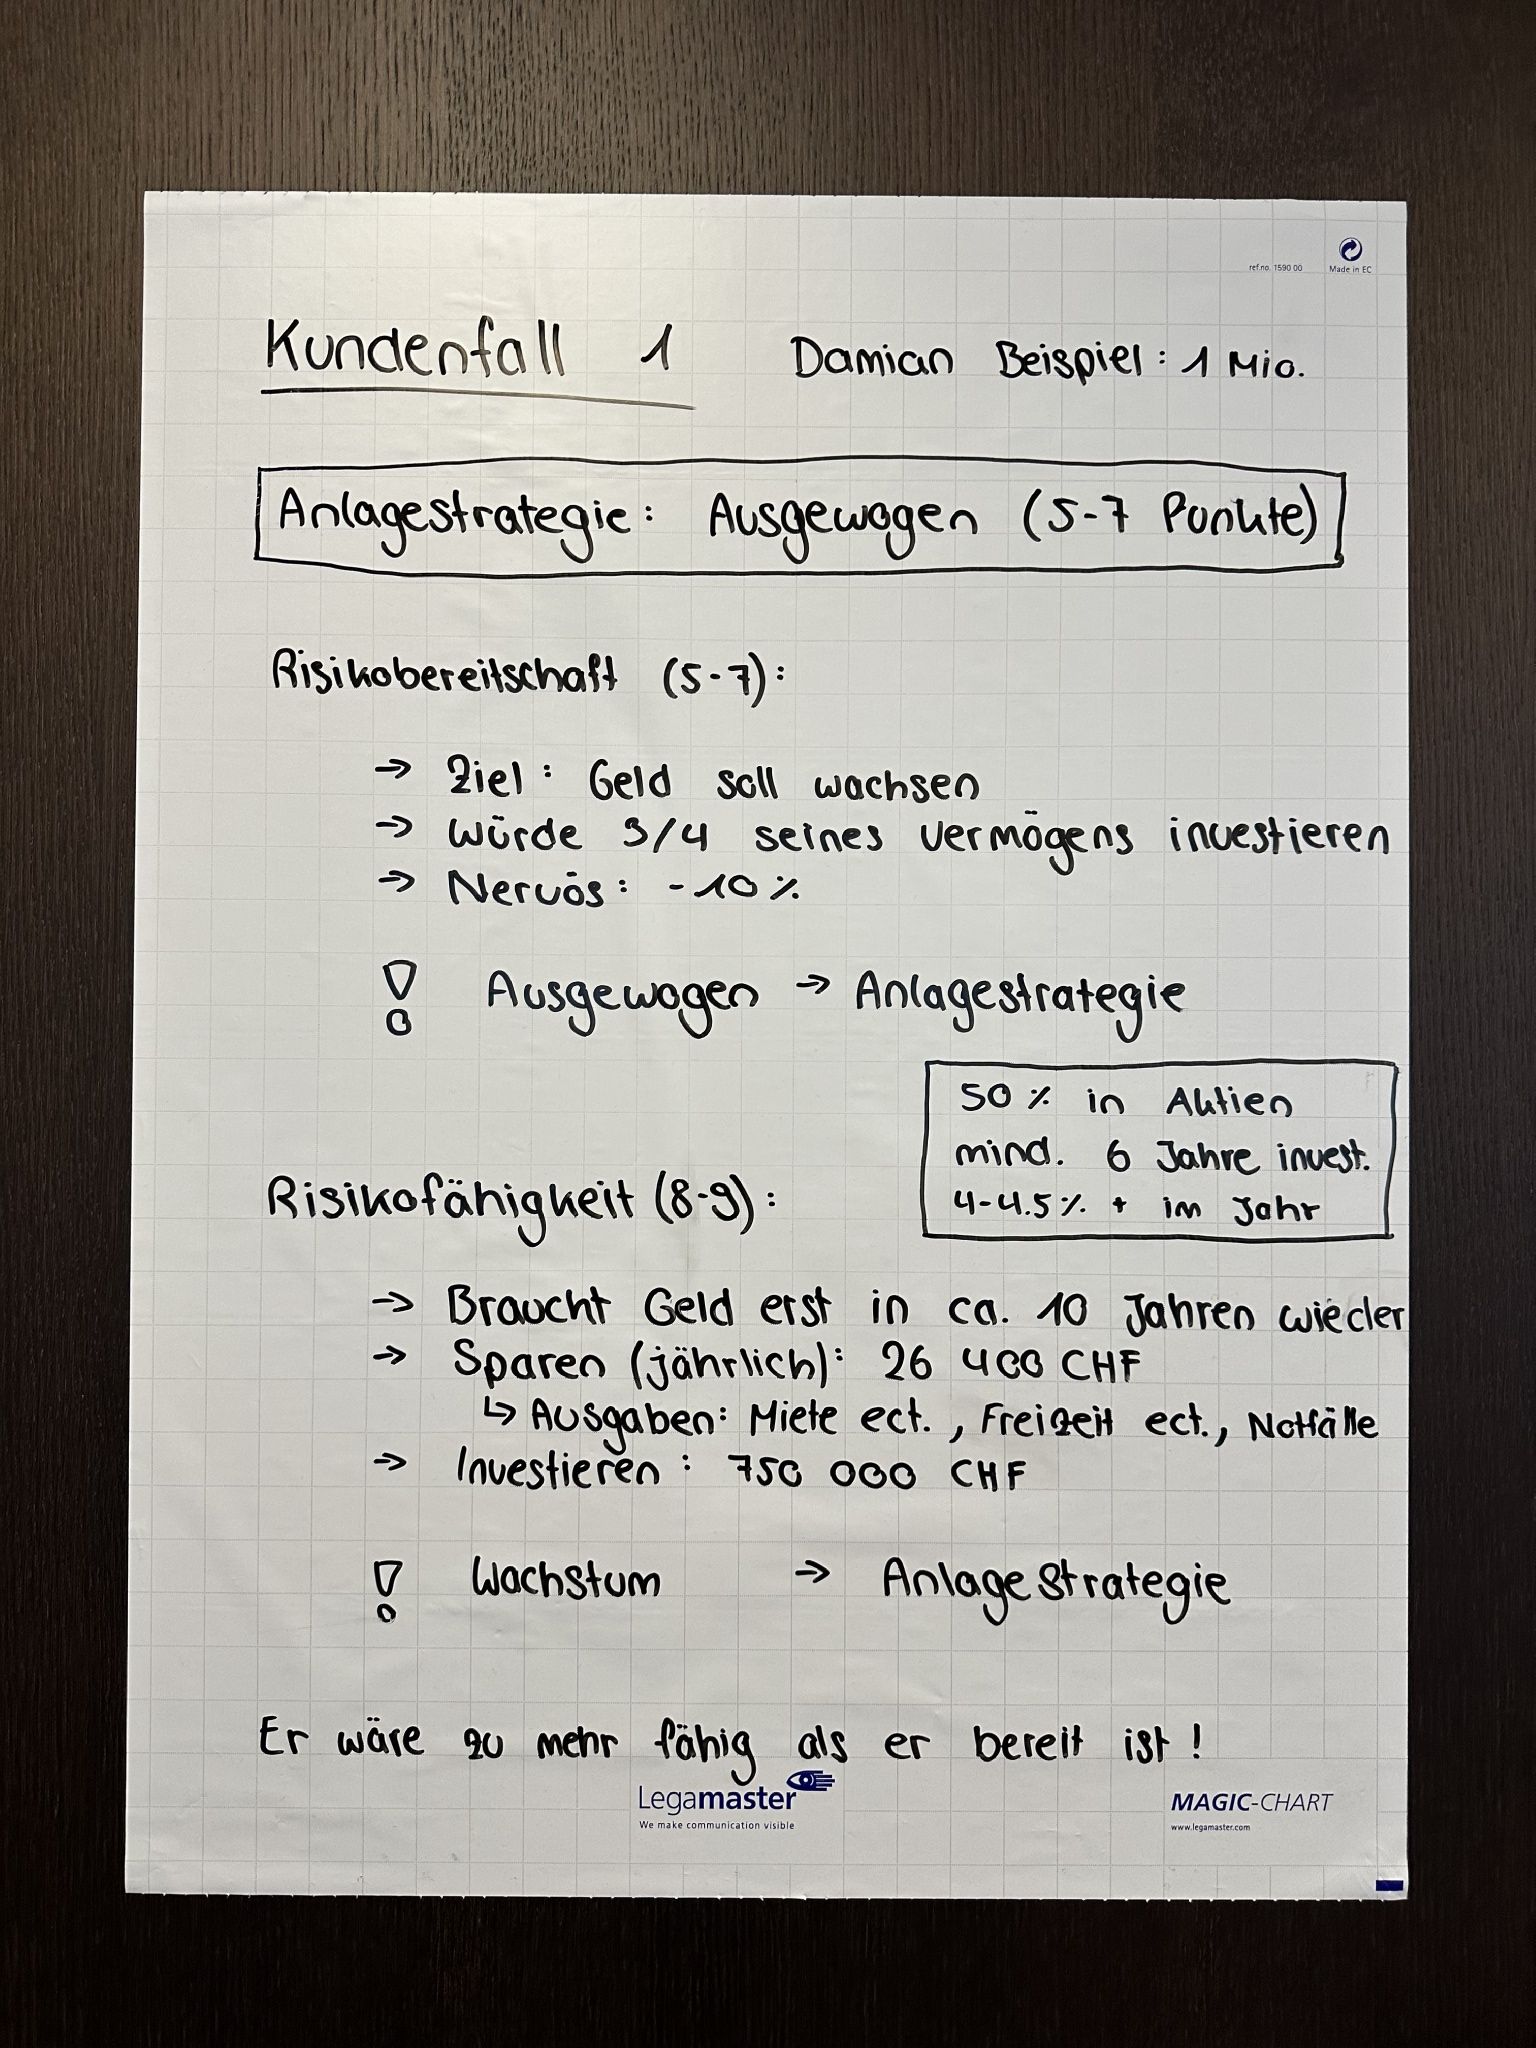 ref.no. 1590 00
Made in EC
Kundenfall 1 Damian Beispiel: 1 Mio.
Anlagestrategie: Ausgewogen (5-7 Punkte)
Risikobereitschaft (5-7):
→ Ziel: Geld soll wachsen
→ Würde 3/4 seines Vermögens investieren
→ Nervös: -10%
! Ausgewogen → Anlagestrategie
50% in Aktien
mind. 6 Jahre invest.
4-4.5% + im Jahr
Risikofähigkeit (8-9):
→ Braucht Geld erst in ca. 10 Jahren wieder
→ Sparen (jährlich): 26 400 CHF
↳ Ausgaben: Miete ect., Freizeit ect., Notfälle
→ Investieren: 750 000 CHF
! Wachstum → Anlagestrategie
Er wäre zu mehr fähig als er bereit ist!
Legamaster
We make communication visible
MAGIC-CHART
www.legamaster.com